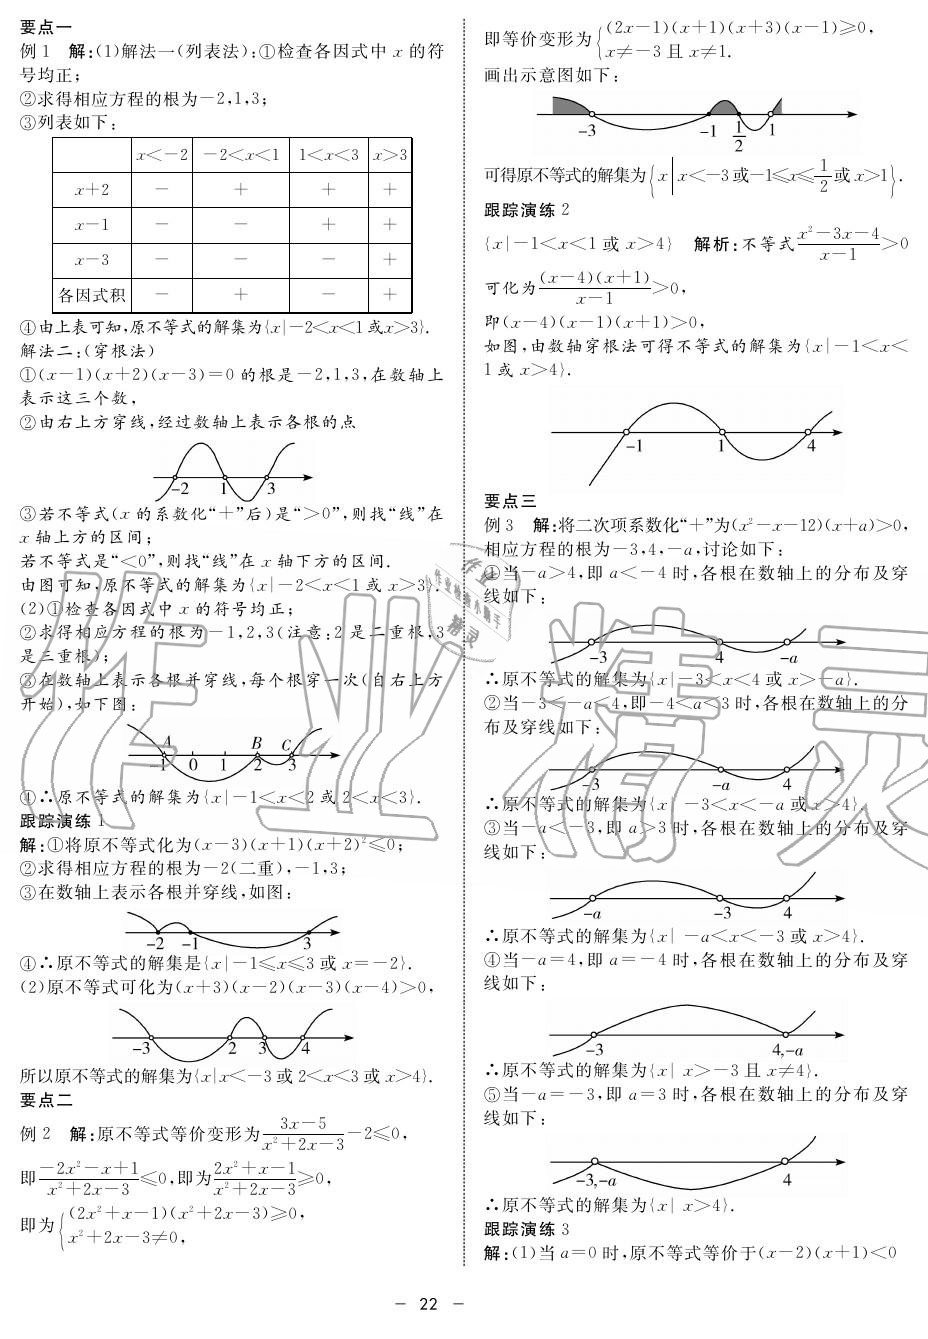 要点一
例1 解:(1)解法一(列表法):①检查各因式中 x 的符
号均正;
②求得相应方程的根为−2,1,3;
③列表如下:
x<−2 −2<x<1 1<x<3 x>3
x+2 − + + +
x−1 − − + +
x−3 − − − +
各因式积 − + − +
④由上表可知,原不等式的解集为{x|−2<x<1或x>3}.
解法二:(穿根法)
①(x−1)(x+2)(x−3)=0 的根是−2,1,3,在数轴上
表示这三个数,
②由右上方穿线,经过数轴上表示各根的点
−2 1 3
③若不等式(x 的系数化“+”后)是“>0”,则找“线”在
x 轴上方的区间;
若不等式是“<0”,则找“线”在 x 轴下方的区间.
由图可知,原不等式的解集为{x|−2<x<1 或 x>3}.
(2)①检查各因式中 x 的符号均正;
②求得相应方程的根为−1,2,3(注意:2 是二重根,3
是三重根);
③在数轴上表示各根并穿线,每个根穿一次(自右上方
开始),如下图:
A B C
−1 0 1 2 3
④∴原不等式的解集为{x|−1<x<2 或 2<x<3}.
跟踪演练 1
解:①将原不等式化为(x−3)(x+1)(x+2)²≤0;
②求得相应方程的根为−2(二重),−1,3;
③在数轴上表示各根并穿线,如图:
−2 −1 3
④∴原不等式的解集是{x|−1≤x≤3 或 x=−2}.
(2)原不等式可化为(x+3)(x−2)(x−3)(x−4)>0,
−3 2 3 4
所以原不等式的解集为{x|x<−3 或 2<x<3 或 x>4}.
要点二
例2 解:原不等式等价变形为(3x−5)/(x²+2x−3)−2≤0,
即(−2x²−x+1)/(x²+2x−3)≤0,即为(2x²+x−1)/(x²+2x−3)≥0,
即为{(2x²+x−1)(x²+2x−3)≥0,
x²+2x−3≠0,
即等价变形为{(2x−1)(x+1)(x+3)(x−1)≥0,
x≠−3 且 x≠1.
画出示意图如下:
−3 −1 1/2 1
可得原不等式的解集为{x|x<−3或−1≤x≤1/2或x>1}.
跟踪演练 2
{x|−1<x<1 或 x>4} 解析:不等式(x²−3x−4)/(x−1)>0
可化为(x−4)(x+1)/(x−1)>0,
即(x−4)(x−1)(x+1)>0,
如图,由数轴穿根法可得不等式的解集为{x|−1<x<
1 或 x>4}.
−1 1 4
要点三
例3 解:将二次项系数化“+”为(x²−x−12)(x+a)>0,
相应方程的根为−3,4,−a,讨论如下:
①当−a>4,即 a<−4 时,各根在数轴上的分布及穿
线如下:
−3 4 −a
∴原不等式的解集为{x|−3<x<4 或 x>−a}.
②当−3<−a<4,即−4<a<3 时,各根在数轴上的分
布及穿线如下:
−3 −a 4
∴原不等式的解集为{x| −3<x<−a 或 x>4}.
③当−a<−3,即 a>3 时,各根在数轴上的分布及穿
线如下:
−a −3 4
∴原不等式的解集为{x| −a<x<−3 或 x>4}.
④当−a=4,即 a=−4 时,各根在数轴上的分布及穿
线如下:
−3 4,−a
∴原不等式的解集为{x| x>−3 且 x≠4}.
⑤当−a=−3,即 a=3 时,各根在数轴上的分布及穿
线如下:
−3,−a 4
∴原不等式的解集为{x| x>4}.
跟踪演练 3
解:(1)当 a=0 时,原不等式等价于(x−2)(x+1)<0
− 22 −
作业精灵
作业检查小助手
精灵